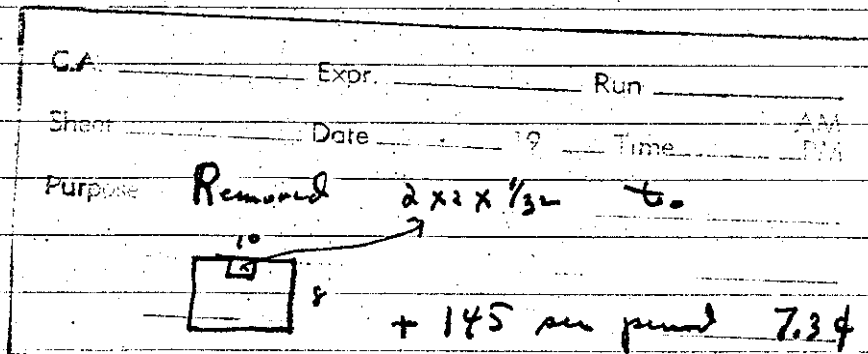 C.A. Expr. Run
Sheet Date 19 Time AM PM
Purpose Removed 2 x 2 x 1/32
10
8
+ 145 sec period 7.3 ¢